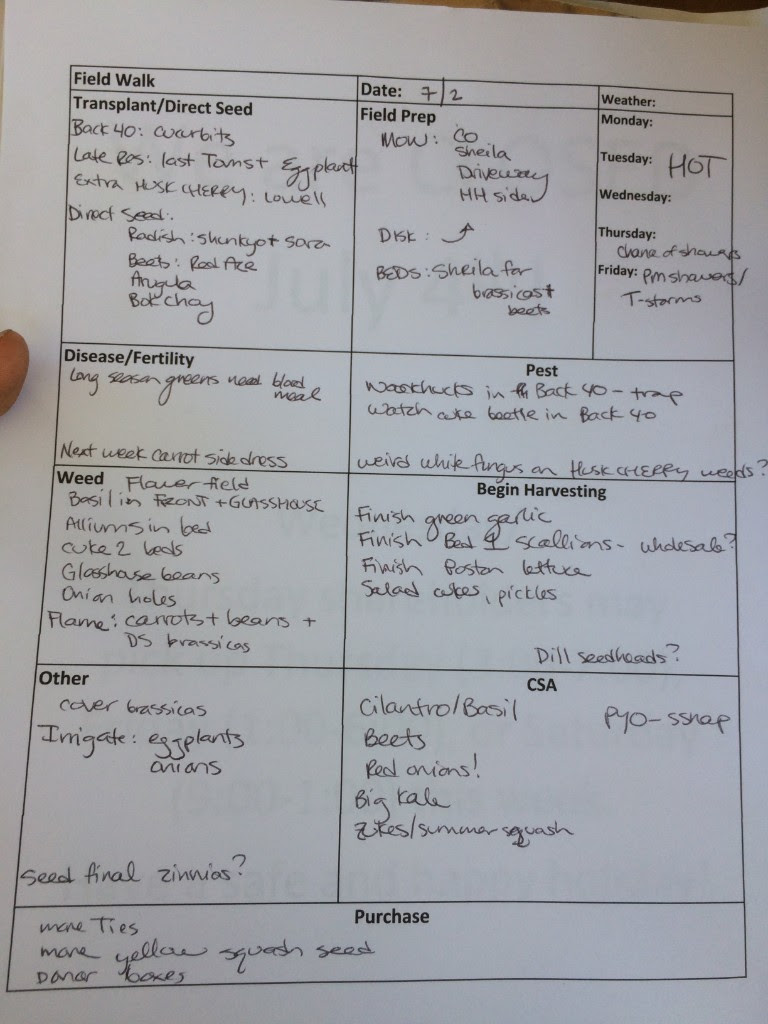 Field Walk
Date: 7/2
Weather:
Transplant/Direct Seed
Back 40: cucurbits
Late Ros: last Toms + Eggplant
Extra HUSK CHERRY: Lowell
Direct Seed:
Radish: shunkyo + sora
Beets: Red Ace
Arugula
Bok choy
Field Prep
MOW: CO
Sheila
Driveway
HH side
DISK: ⤴
BEDS: Sheila for
brassicas +
beets
Monday:
Tuesday: HOT
Wednesday:
Thursday:
chance of showers
Friday: PM showers/
T-storms
Disease/Fertility
Long season greens need blood
meal
Next week carrot sidedress
Pest
Woodchucks in Back 40 - trap
Watch cuke beetle in Back 40
weird white fungus on HUSK CHERRY weeds?
Weed Flower field
Basil in FRONT + GLASSHOUSE
Alliums in bed
Cuke 2 beds
Glasshouse beans
Onion holes
Flame: carrots + beans +
DS brassicas
Begin Harvesting
Finish green garlic
Finish Bed 1 scallions - wholesale?
Finish Boston lettuce
Salad cukes, pickles
Dill seedheads?
Other
cover brassicas
Irrigate: eggplants
onions
Seed final zinnias?
CSA
Cilantro/Basil
PYO - ssnap
Beets
Red onions!
Big Kale
Zukes/summer squash
Purchase
more Ties
more yellow squash seed
Donor boxes